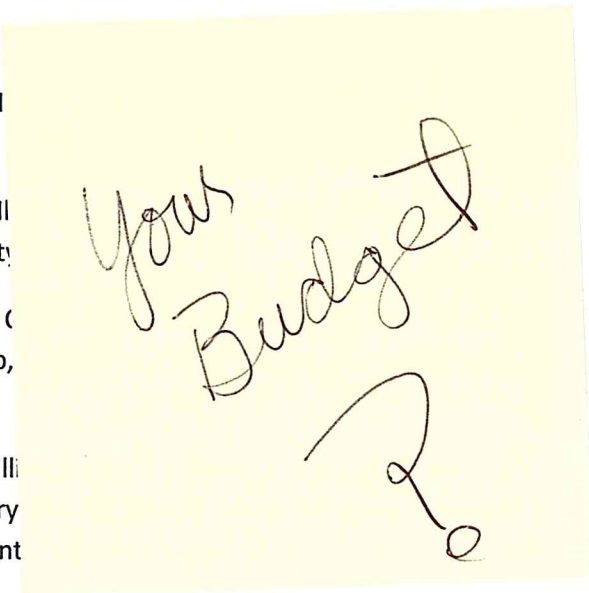 Your
Budget
?